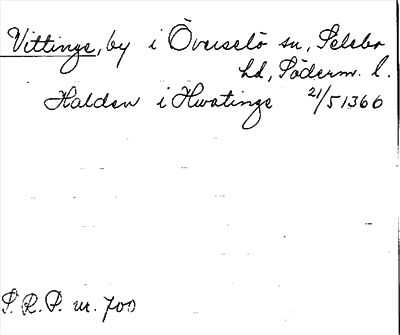 Vittinge, by i Överselö sn, Selebo
hd, Söderm. l.
Haldan i Hwatinge 21/5 1366
S.R.P. nr. 700